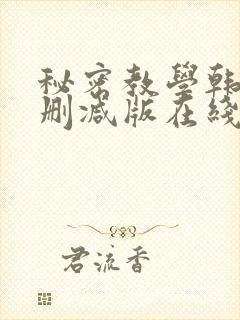 秘密教學韩
删减版在线
君流香